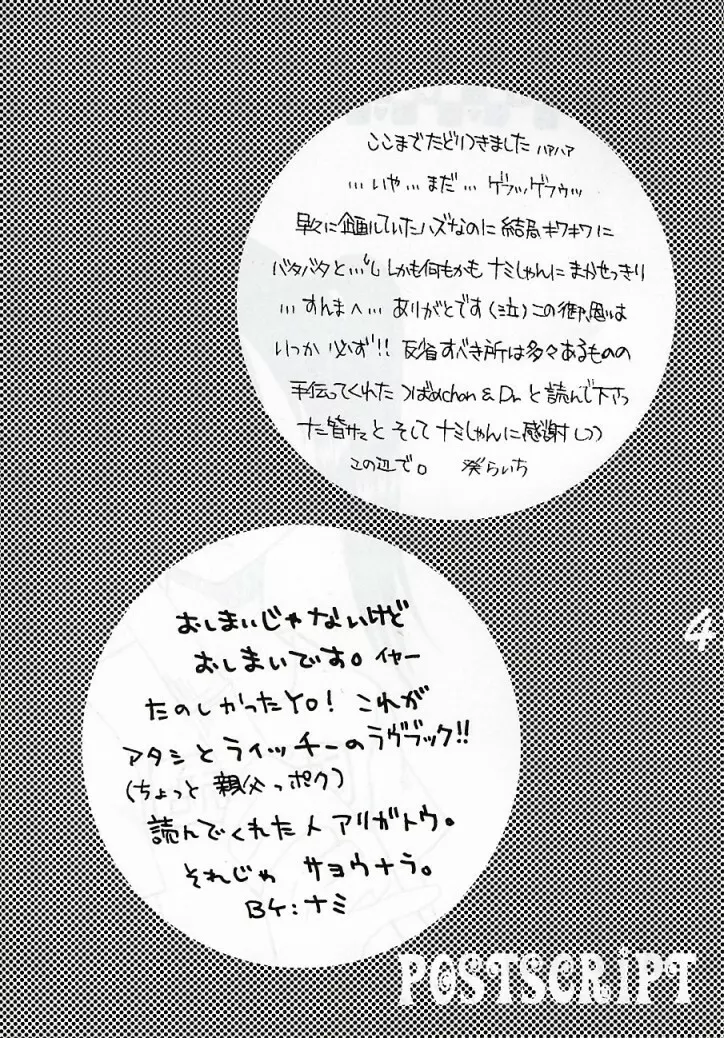 ここまでたどりつきました ハァハァ
…いや…まだ…ゲフッゲフゥッ
早々に企画していたハズなのに結局キワキワに
バタバタと…しかも何もかもナミしゃんにまかせっきり
…すんまへ…ありがとです(泣)この御恩は
いつか必ず!!反省すべき所は多々あるものの
手伝ってくれたつばめchan & Dr.と読んで下さっ
た皆サマとそしてナミしゃんに感謝しつつ
この辺で。 葵らいち
おしまいじゃないけど
おしまいです。イヤー
たのしかったYO!これが
アタシとライッチーのラヴブック!!
(ちょっと親父っポク)
読んでくれた人アリガトウ。
それじゃ サヨウナラ。
BY:ナミ
4
POSTSCRIPT